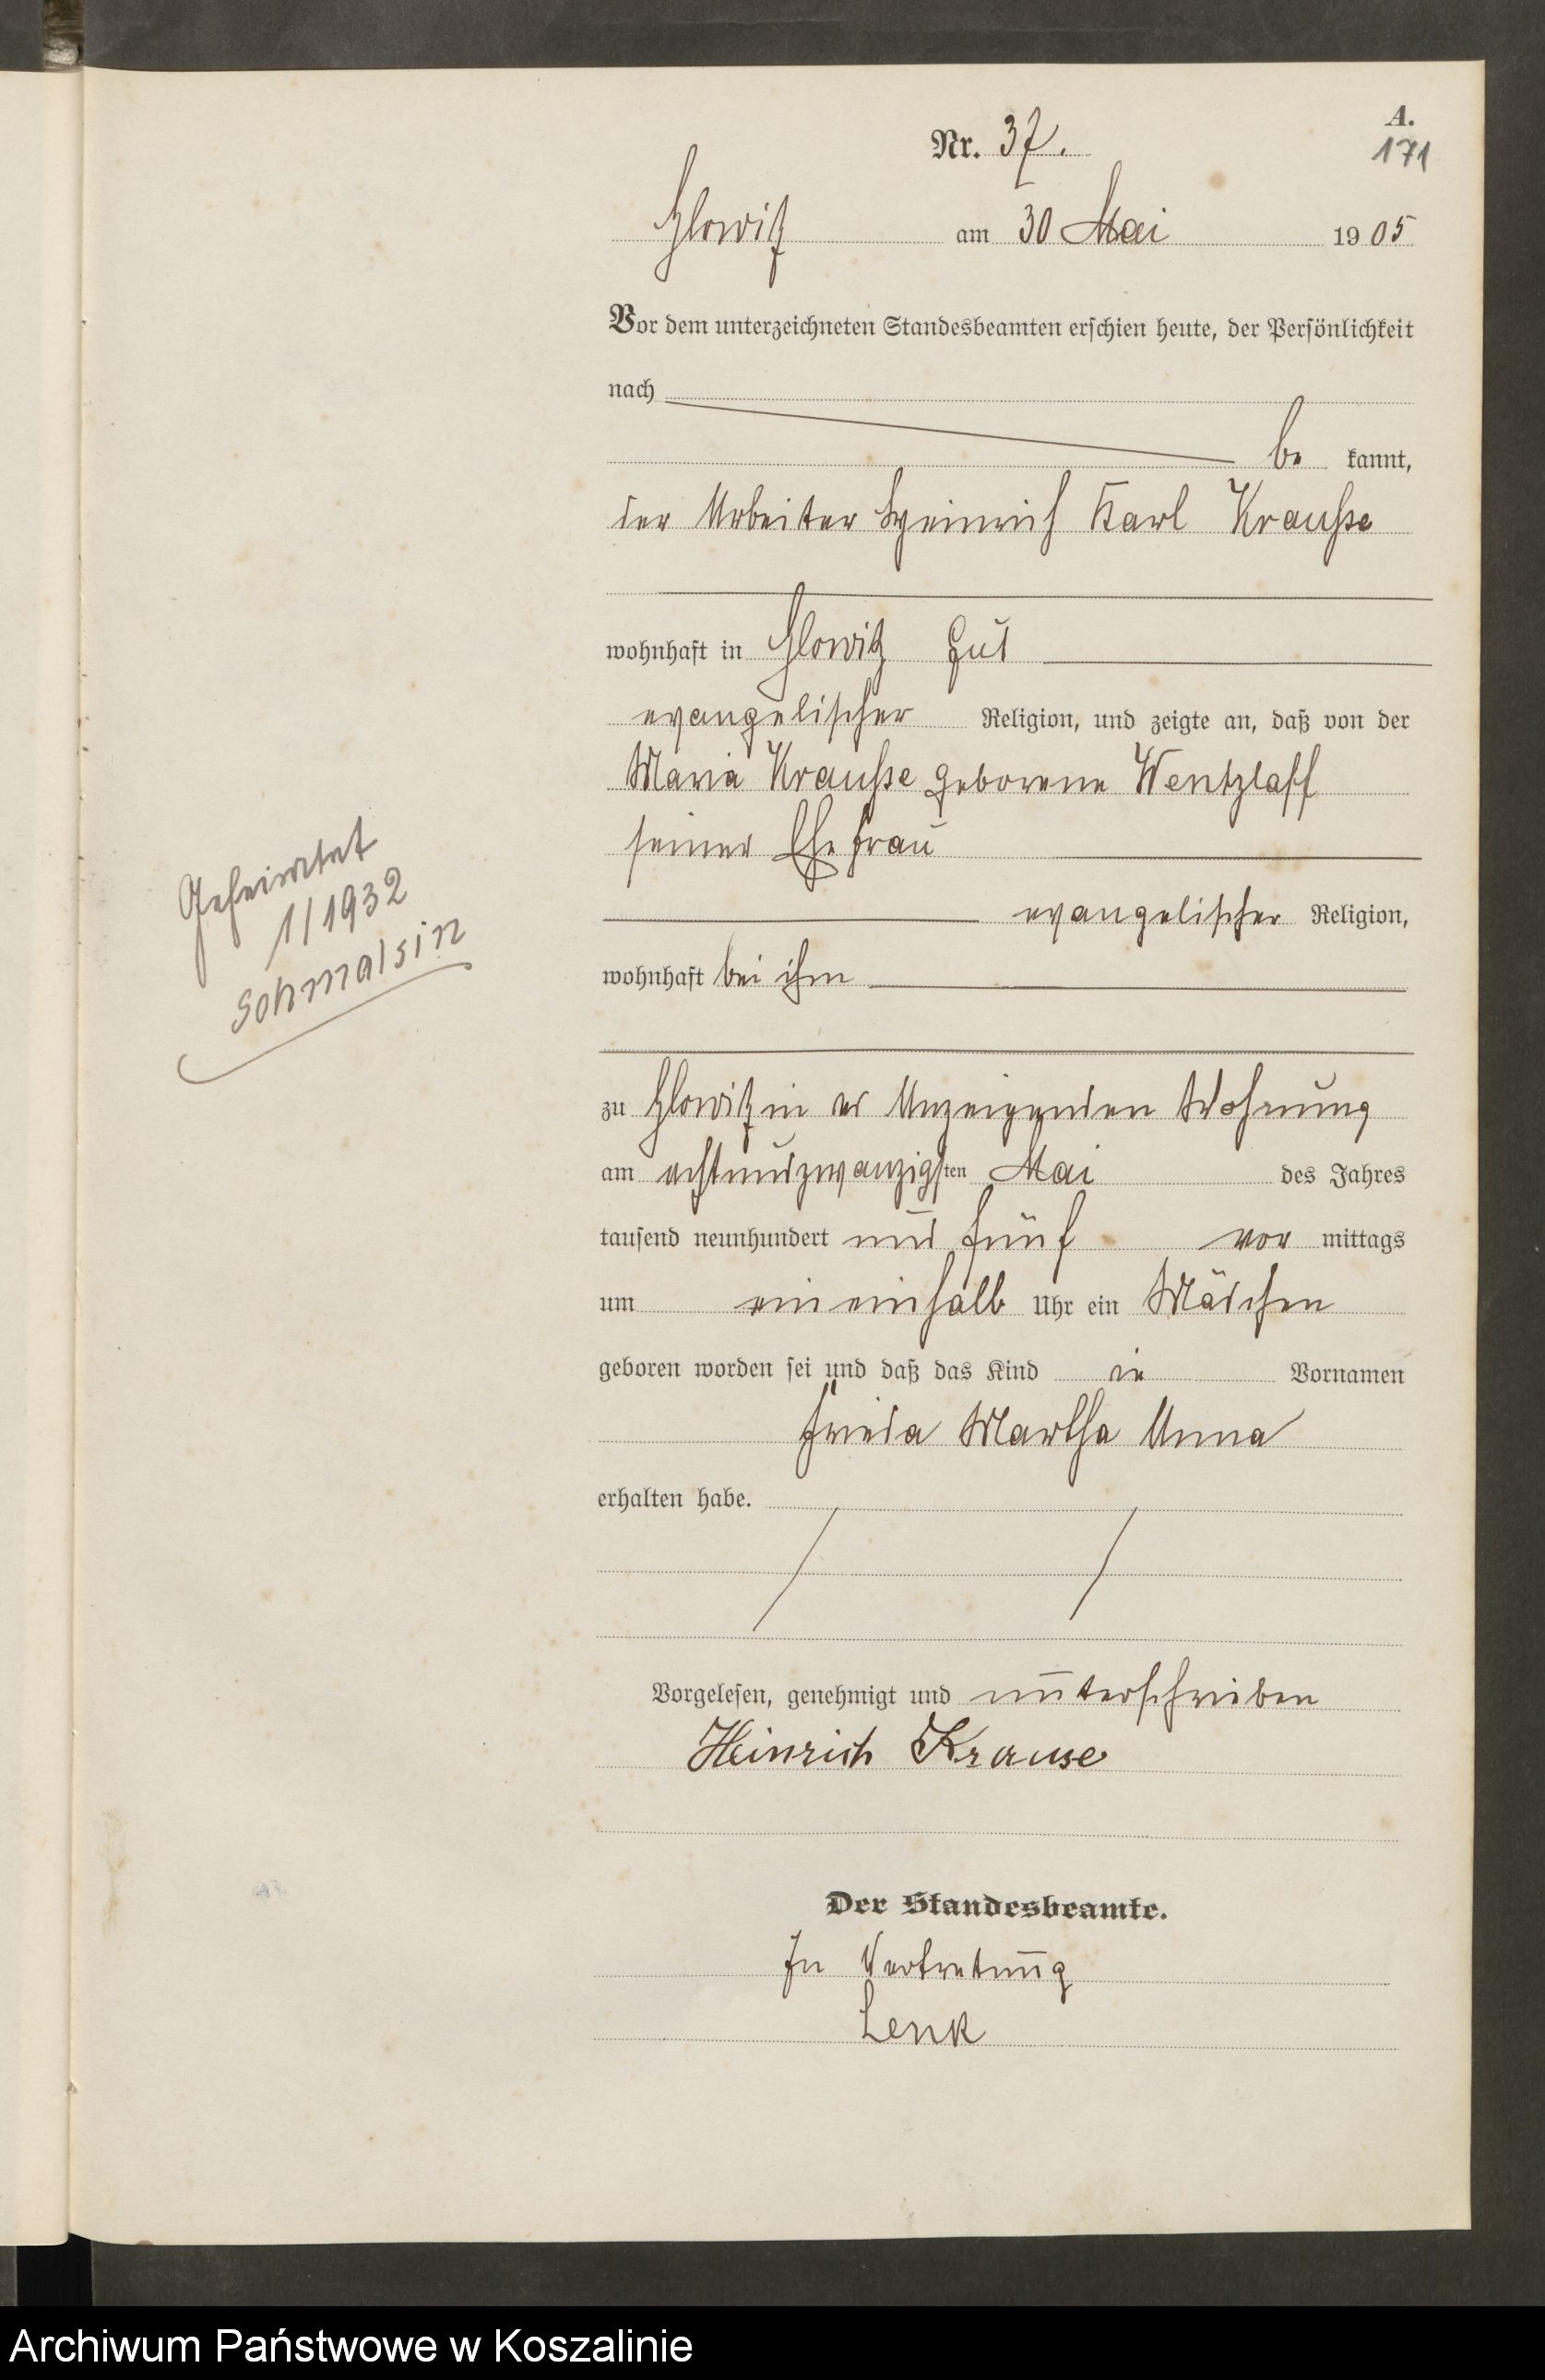 A.
171
Nr. 37.
Glowitz am 30 Mai 1905
Vor dem unterzeichneten Standesbeamten erschien heute, der Persönlichkeit
nach
be kannt,
der Arbeiter Heinrich Karl Krauße
wohnhaft in Glowitz Gut
evangelischer Religion, und zeigte an, daß von der
Maria Krauße geborene Wentzlaff
seiner Ehefrau
evangelischer Religion,
wohnhaft bei ihm
Geheiratet
1/1932
Schmalsin
zu Glowitz in des Anzeigenden Wohnung
am achtundzwanzigsten Mai des Jahres
tausend neunhundert und fünf vor mittags
um eineinhalb Uhr ein Mädchen
geboren worden sei und daß das Kind die Vornamen
Frieda Martha Anna
erhalten habe.
Vorgelesen, genehmigt und unterschrieben
Heinrich Krause
Der Standesbeamte.
In Vertretung
Lenk
Archiwum Państwowe w Koszalinie